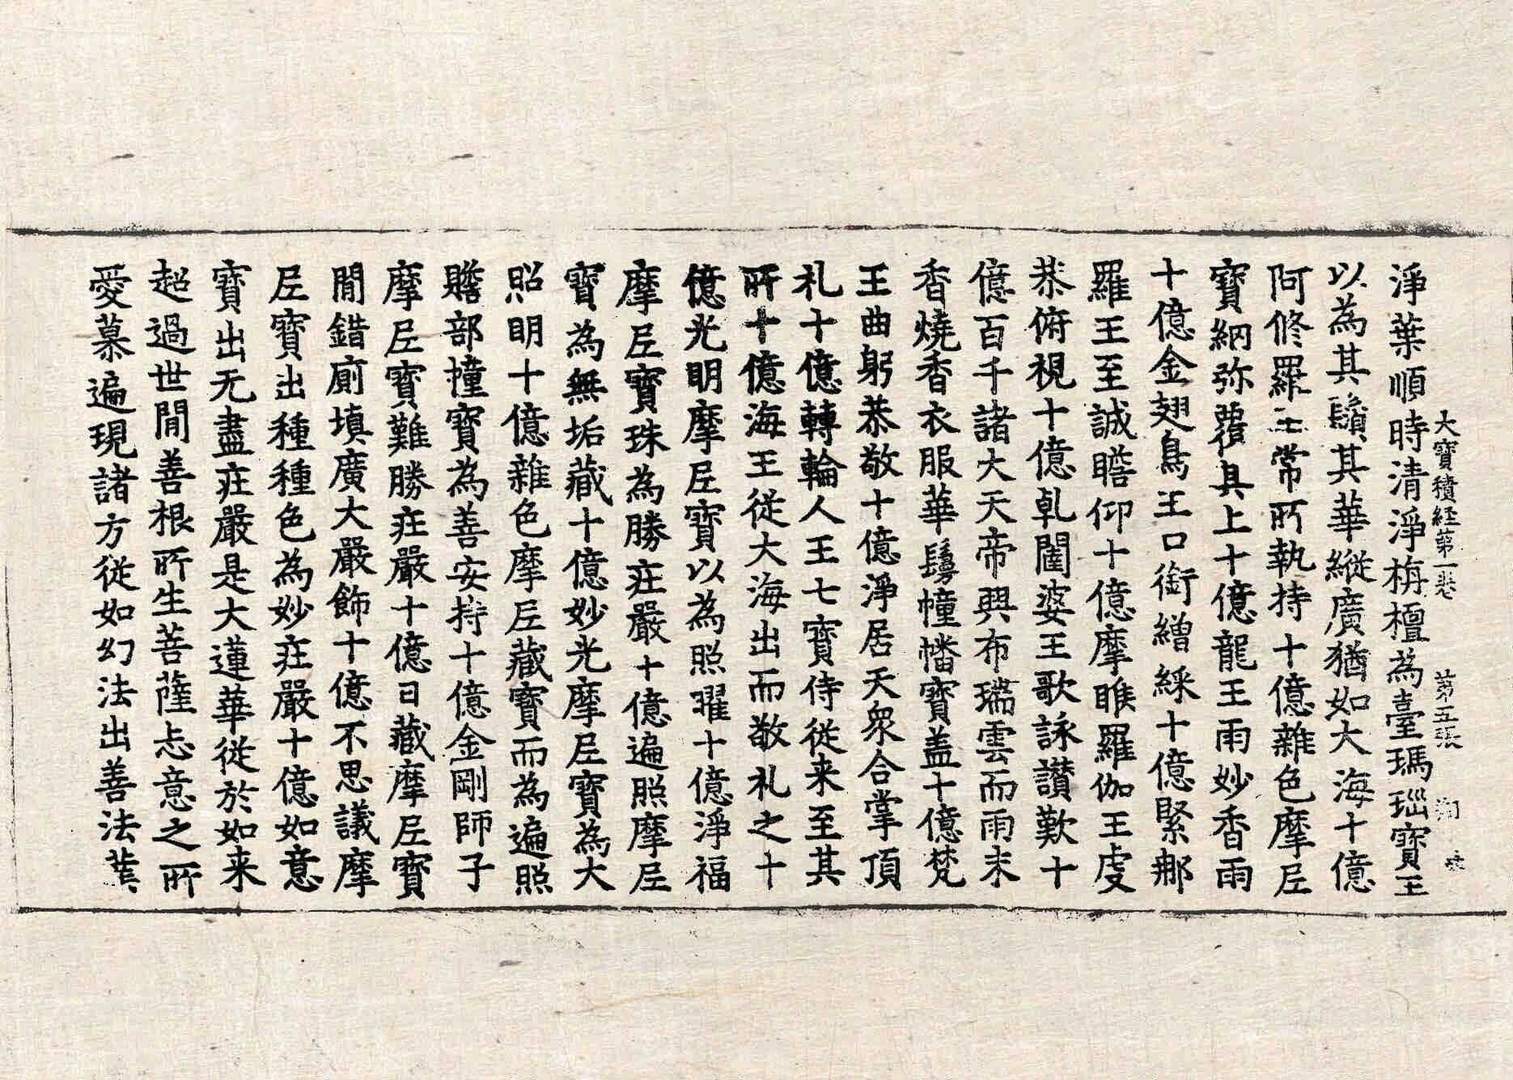 大寶積経第一巻 第五張
淨葉順時清淨栴檀為臺瑪瑙寶王
以為其鬚其華縱廣猶如大海十億
阿修羅王常所執持十億雜色摩尼
寶網弥覆具上十億龍王雨妙香雨
十億金翅鳥王口銜繒綵十億緊那
羅王至誠瞻仰十億摩睺羅伽王虔
恭俯視十億乹闥婆王歌詠讃歎十
億百千諸大天帝興布瑞雲而雨末
香燒香衣服華鬘幢幡寶盖十億梵
王曲躬恭敬十億淨居天眾合掌頂
礼十億轉輪人王七寶侍從来至其
所十億海王從大海出而敬礼之十
億光明摩尼寶以為照曜十億淨福
摩尼寶珠為勝莊嚴十億遍照摩尼
寶為無垢藏十億妙光摩尼寶為大
照明十億雜色摩尼藏寶而為遍照
贍部幢寶為善安持十億金剛師子
摩尼寶難勝莊嚴十億日藏摩尼寶
閒錯廁填廣大嚴飾十億不思議摩
尼寶出種種色為妙莊嚴十億如意
寶出无盡莊嚴是大蓮華從於如来
超過世閒善根所生菩薩志意之所
愛慕遍現諸方從如幻法出善法業